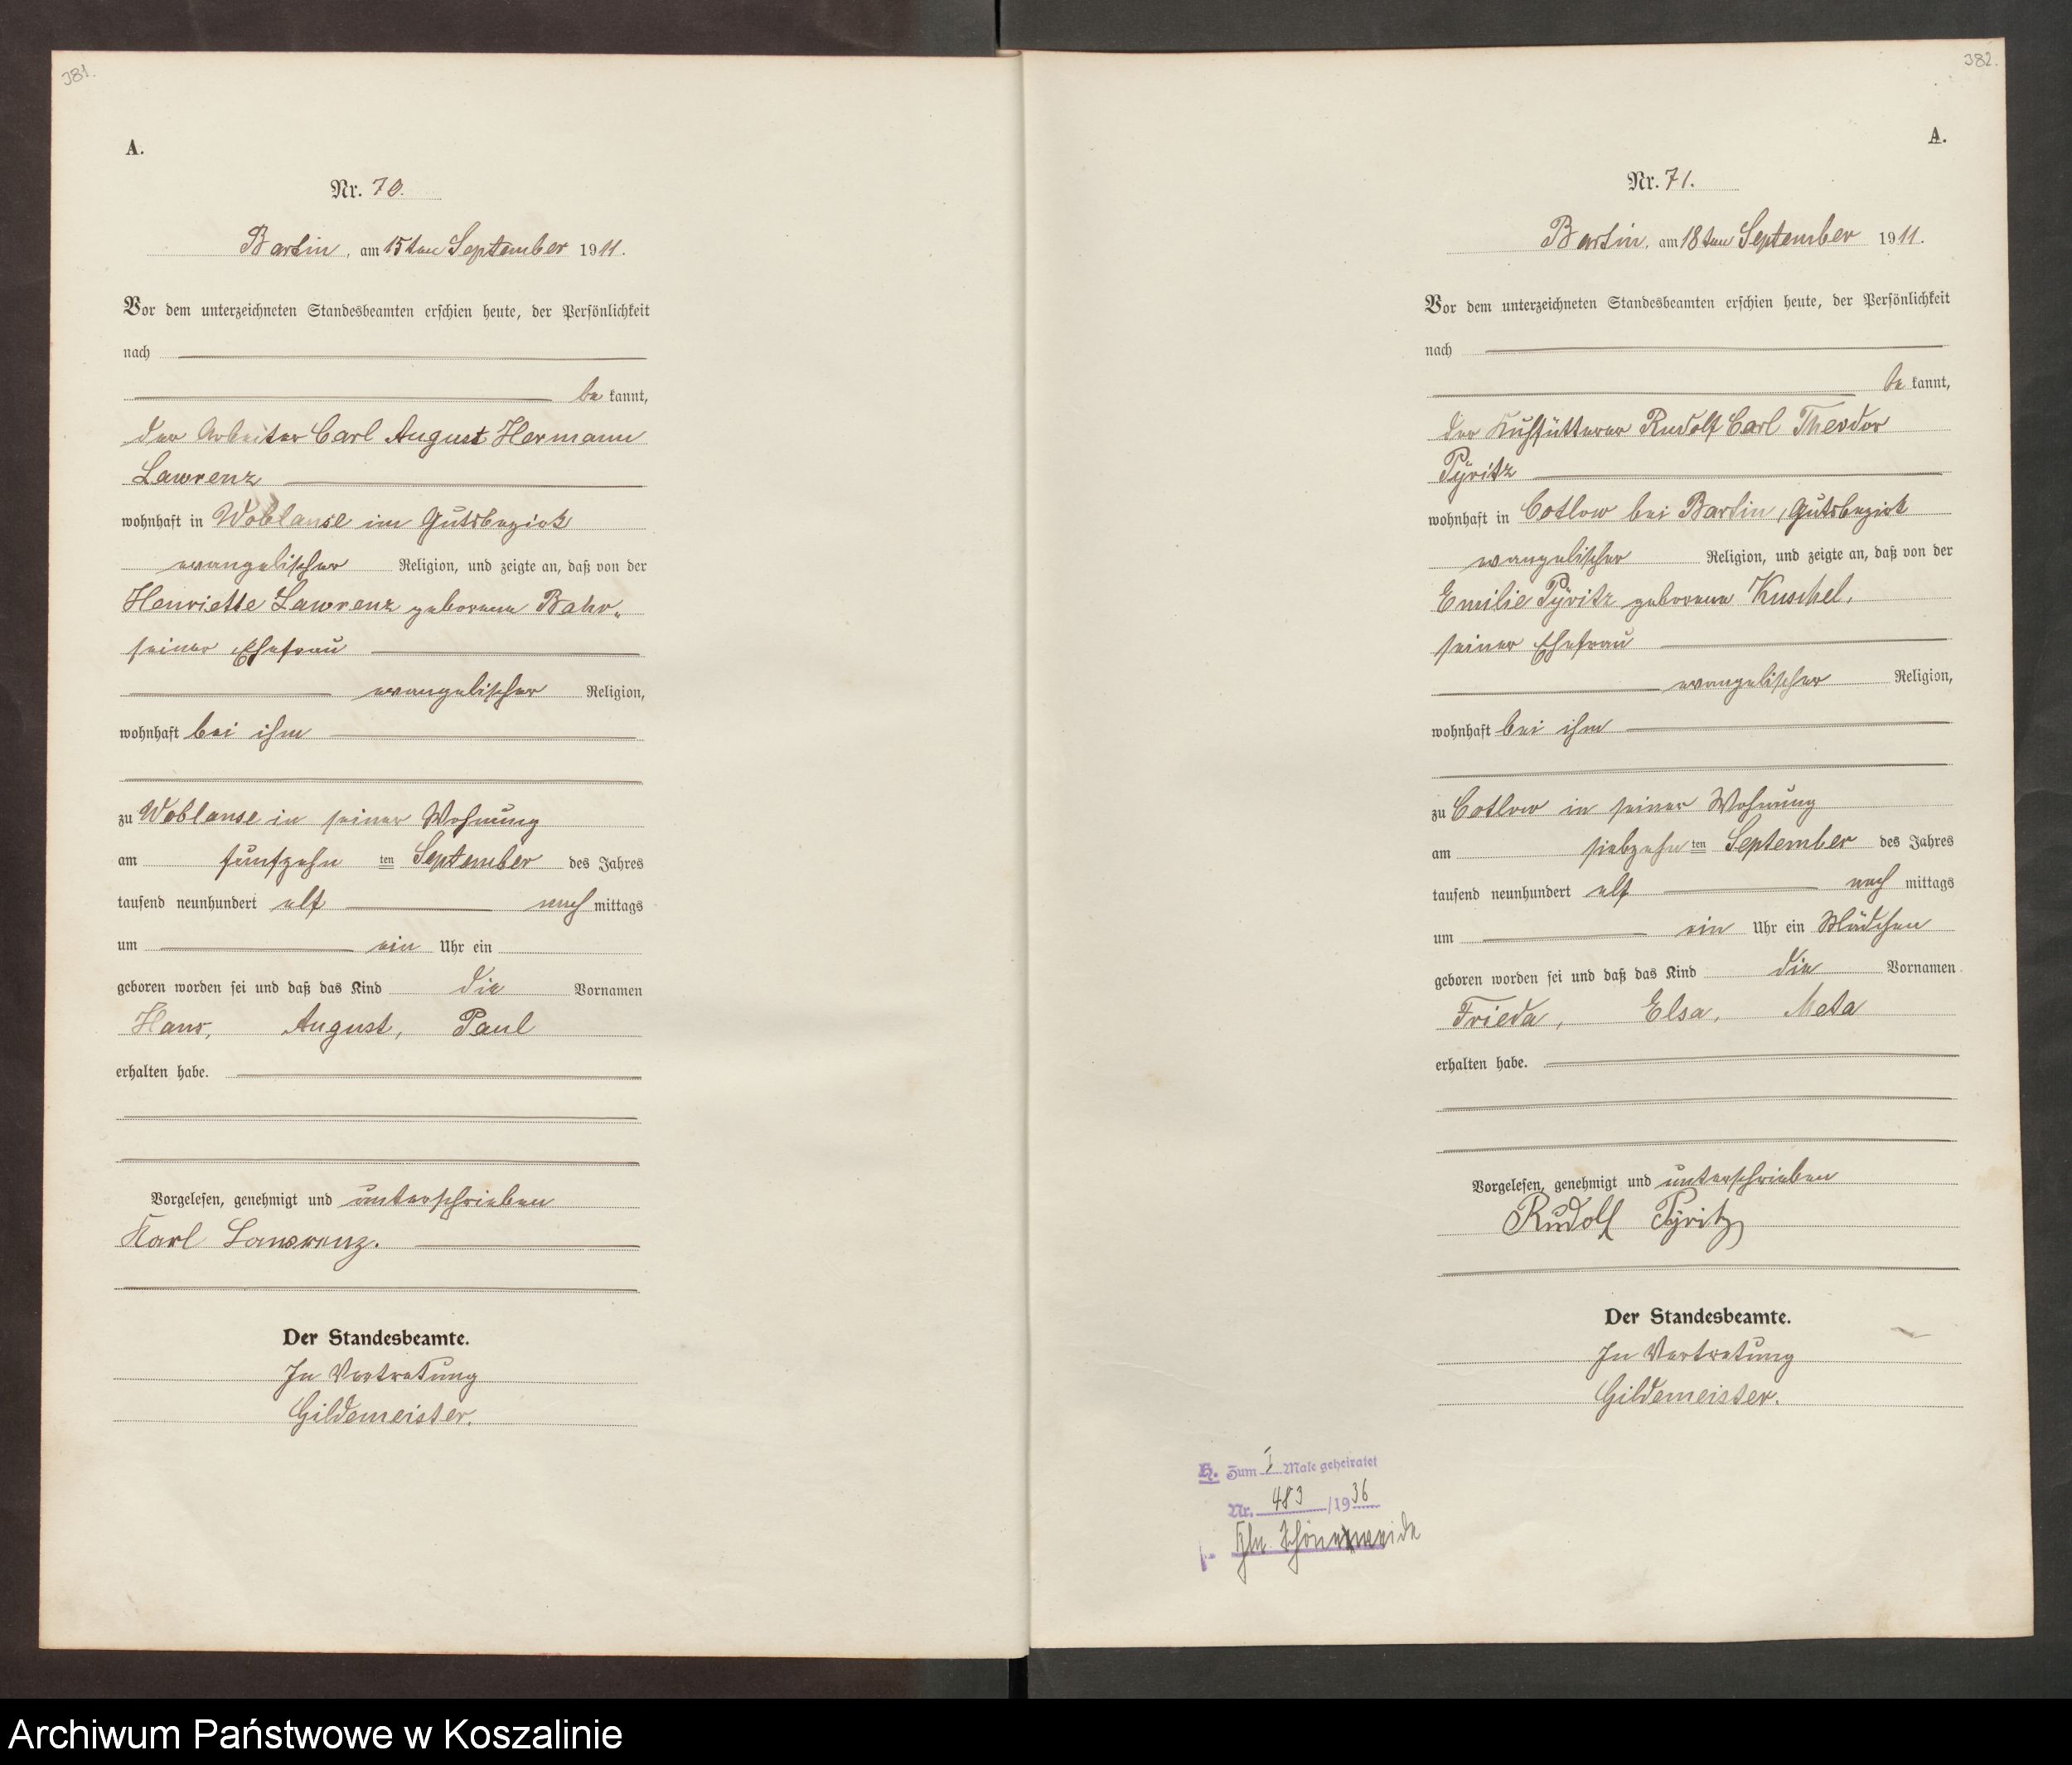 381.
A.
Nr. 70.
Bartin, am 15ten September 1911.
Vor dem unterzeichneten Standesbeamten erschien heute, der Persönlichkeit
nach
be kannt,
der Arbeiter Carl August Hermann
Lawrenz
wohnhaft in Woblanse im Gutsbezirk
evangelischer Religion, und zeigte an, daß von der
Henriette Lawrenz geborene Bahr,
seiner Ehefrau
evangelischer Religion,
wohnhaft bei ihm
zu Woblanse in seiner Wohnung
am fünfzehn ten September des Jahres
tausend neunhundert elf nach mittags
um ein Uhr ein
geboren worden sei und daß das Kind die Vornamen
Hans, August, Paul
erhalten habe.
Vorgelesen, genehmigt und unterschrieben
Karl Lawrenz.
Der Standesbeamte.
In Vertretung
Gildemeister.
382.
A.
Nr. 71.
Bartin, am 18ten September 1911.
Vor dem unterzeichneten Standesbeamten erschien heute, der Persönlichkeit
nach
be kannt,
der Kuhfütterer Rudolf Carl Theodor
Pyritz
wohnhaft in Cotlow bei Bartin, Gutsbezirk
evangelischer Religion, und zeigte an, daß von der
Emilie Pyritz geborene Kuschel,
seiner Ehefrau
evangelischer Religion,
wohnhaft bei ihm
zu Cotlow in seiner Wohnung
am siebzehn ten September des Jahres
tausend neunhundert elf nach mittags
um ein Uhr ein Mädchen
geboren worden sei und daß das Kind die Vornamen
Frieda, Elsa, Meta
erhalten habe.
Vorgelesen, genehmigt und unterschrieben
Rudolf Pyritz
Der Standesbeamte.
In Vertretung
Gildemeister.
H. Zum I Male geheiratet
Nr. 483 /1936
Archiwum Państwowe w Koszalinie